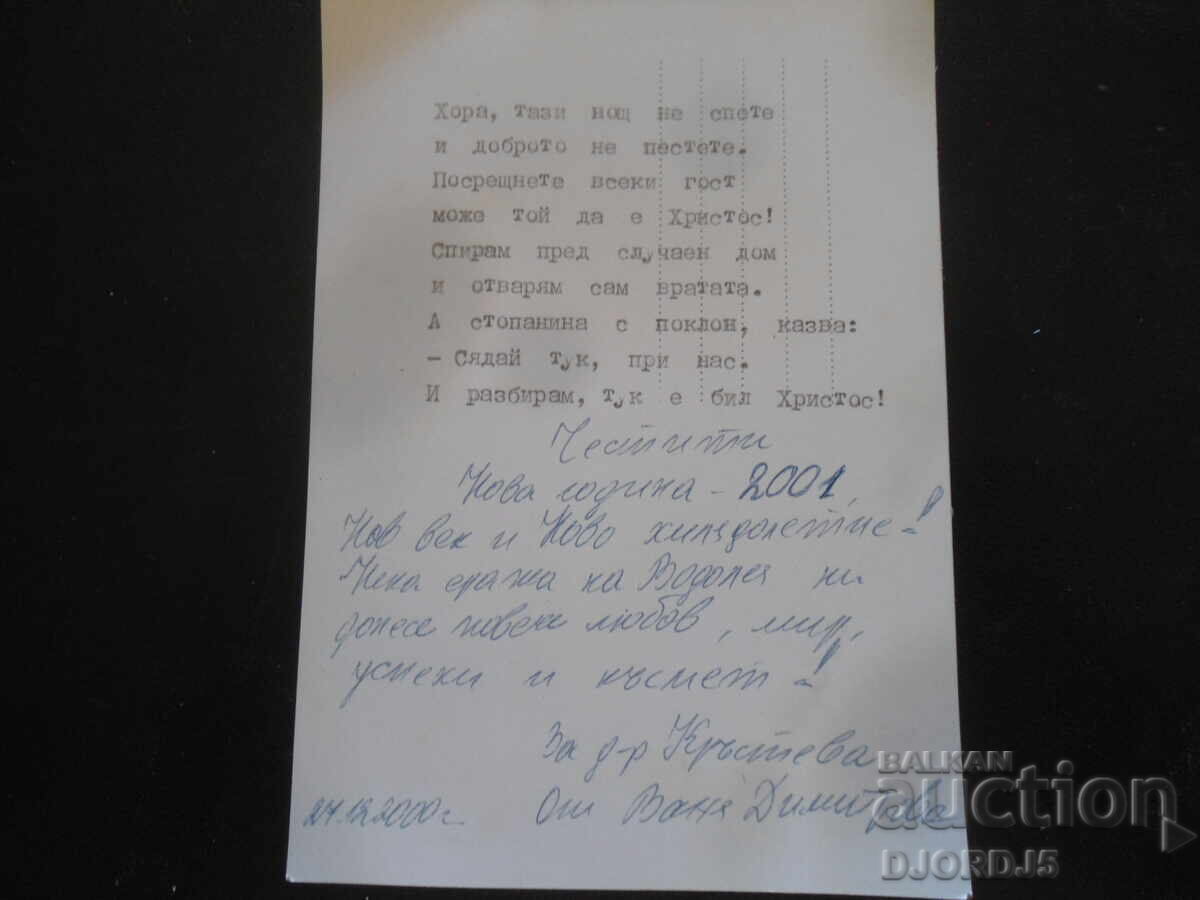 Хора, тази нощ не спете
и доброто не пестете.
Посрещнете всеки гост
може той да е Христос!
Спирам пред случаен дом
и отварям сам вратата.
А стопанина с поклон, казва:
- Сядай тук, при нас.
И разбирам, тук е бил Христос!
Честити
Нова година - 2001,
Нов век и Ново хилядолетие!
Нека ерата на Водолея ни
донесе повече любов, мир,
успехи и късмет!
За д-р Кръстева
24.12.2000г. От Ваня Димитрова
BALKAN
auction
DJORDJ5